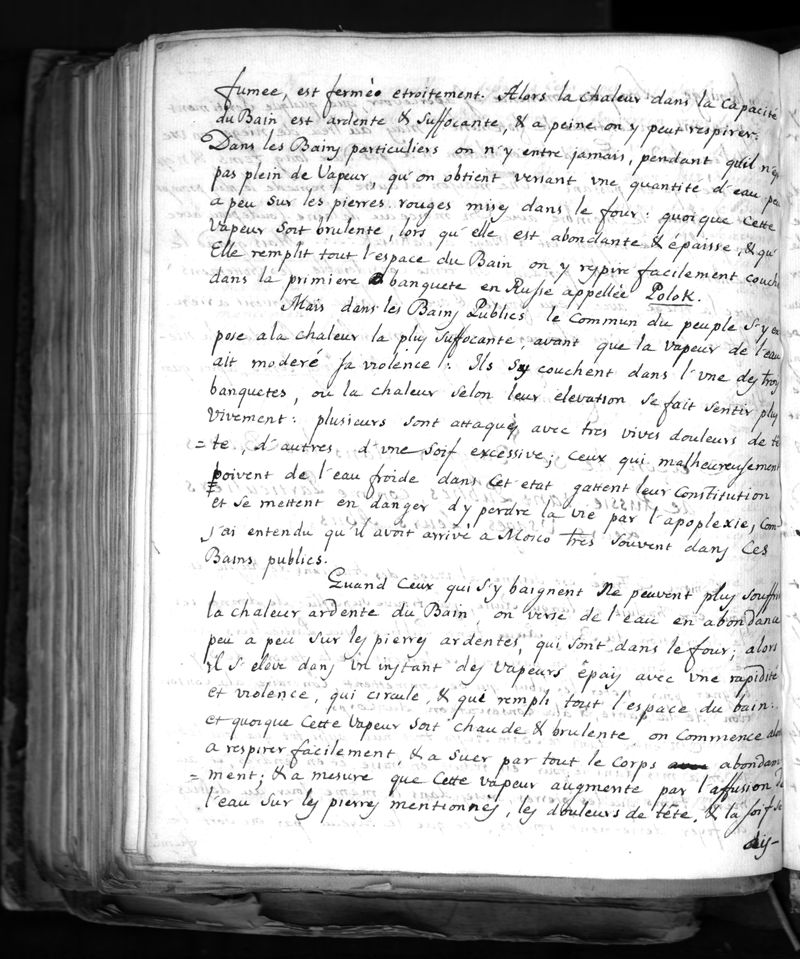 fumee, est fermée etroitement. Alors la chaleur dans la Capacité
du Bain est ardente & suffocante, & a peine on y peut respirer.
Dans les Bains particuliers on n'y entre jamais, pendant qu'il n'es
pas plein de Vapeur, qu'on obtient versant vne quantité d'eau peu
a peu sur les pierres rouges mises dans le four: quoique cette
Vapeur soit brulente, lors qu'elle est abondante & épaisse, & qu'
Elle remplit tout l'espace du Bain on y respire facilement couché
dans la primiere banquete en Russe appellée Polok.
Mais dans les Bains Publics le Commun du peuple s'y ex
pose a la chaleur la plus suffocante, avant que la vapeur de l'eau
ait moderé sa violence: Ils sy couchent dans l'vne des troys
banquetes, ou la chaleur selon leur elevation se fait sentir plus
Vivement: plusieurs sont attaqués avec tres vives douleurs de tê
=te, d'autres d'vne soif excessive; Ceux qui malheureusement
boivent de l'eau froide dans Cet etat gattent leur Constitution
et se mettent en danger d'y perdre la vie par l'apoplexie, Com=
j'ai entendu qu'il avoit arrivé a Mosco tres souvent dans Ces
Bains publics.
Quand Ceux qui s'y baignent Ne peuvent plus souffrir
la chaleur ardente du Bain, on verse de l'eau en abondance
peu a peu sur les pierres ardentes, qui sont dans le four; alors
il s'eleve dans vn instant des Vapeurs êpais avec vne rapidité
et violence, qui circule, & que rempli tout l'espace du bain:
et quoique Cette Vapeur soit chaude & brulente on Commence alors
a respirer facilement, & a suer par tout le Corps abondam
=ment; & a mesure que Cette vapeur augmente par l'affusion de
l'eau sur les pierres mentionnés, les douleurs de tête, & la soif se
dis-